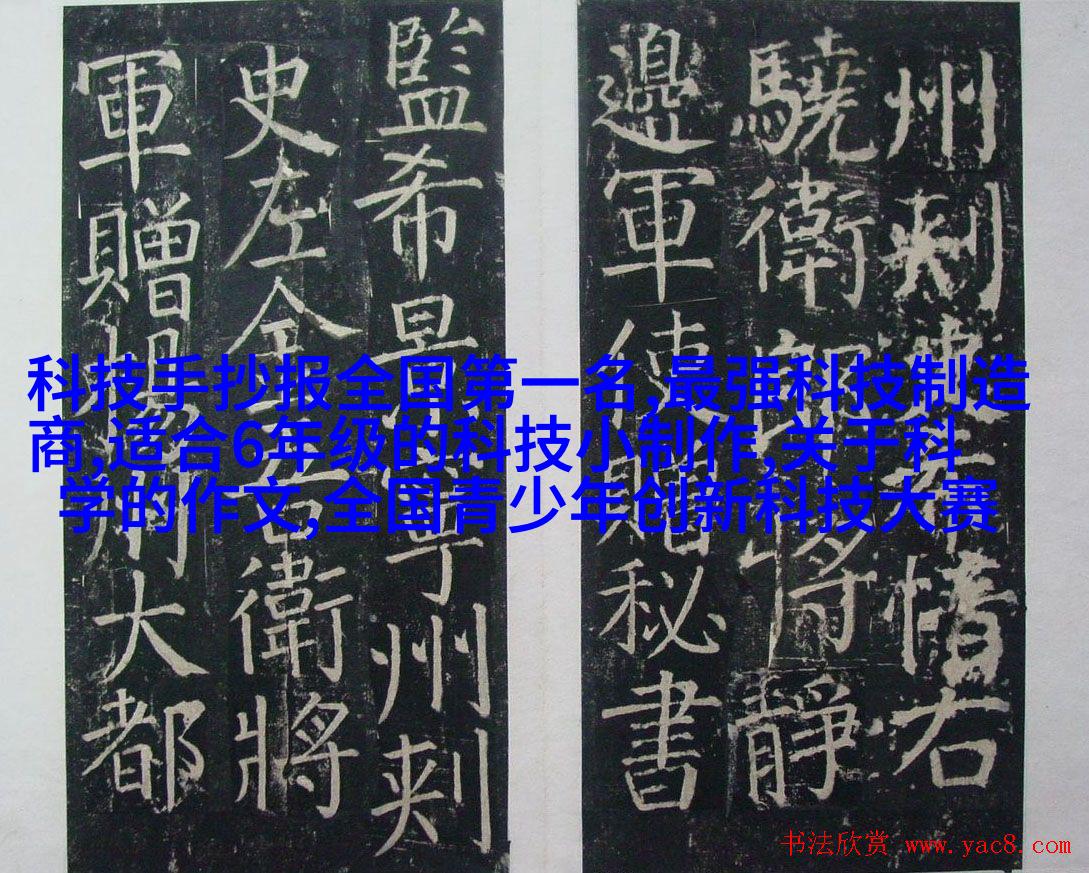 州刺右
驍衛郎將靜
邊軍使贈秘書
監希景寧州刺
史左金吾衛將
軍贈揚州大都
科技手抄报全国第一名,最强科技制造
商,适合6年级的科技小制作,关于科
学的作文,全国青少年创新科技大赛
书法欣赏 www.yac8.com